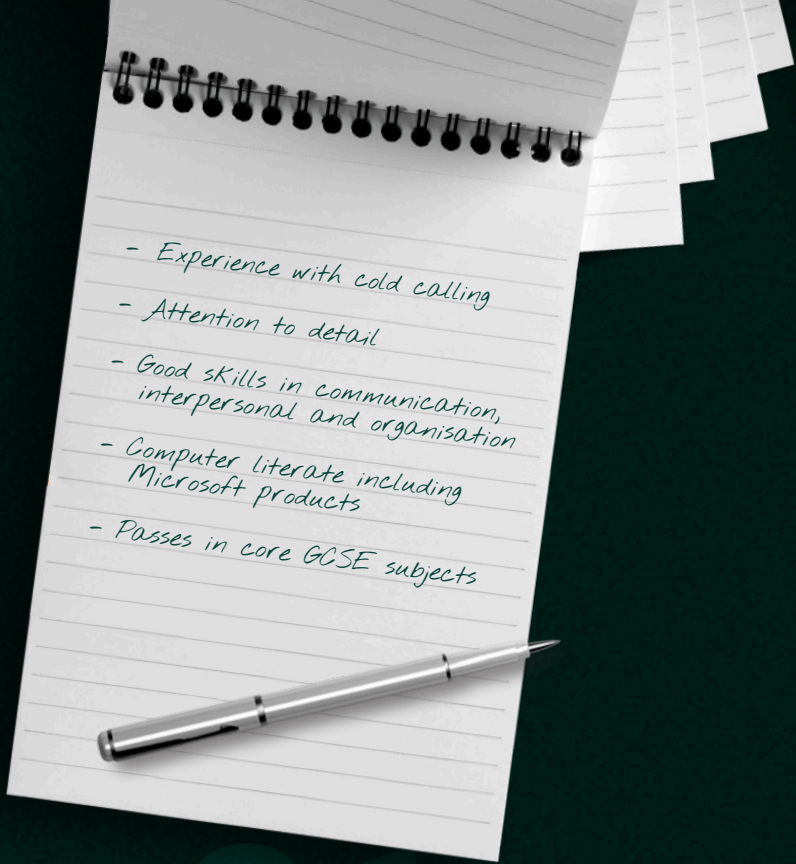 - Experience with cold calling
- Attention to detail
- Good skills in communication,
interpersonal and organisation
- Computer literate including
Microsoft products
- Passes in core GCSE subjects